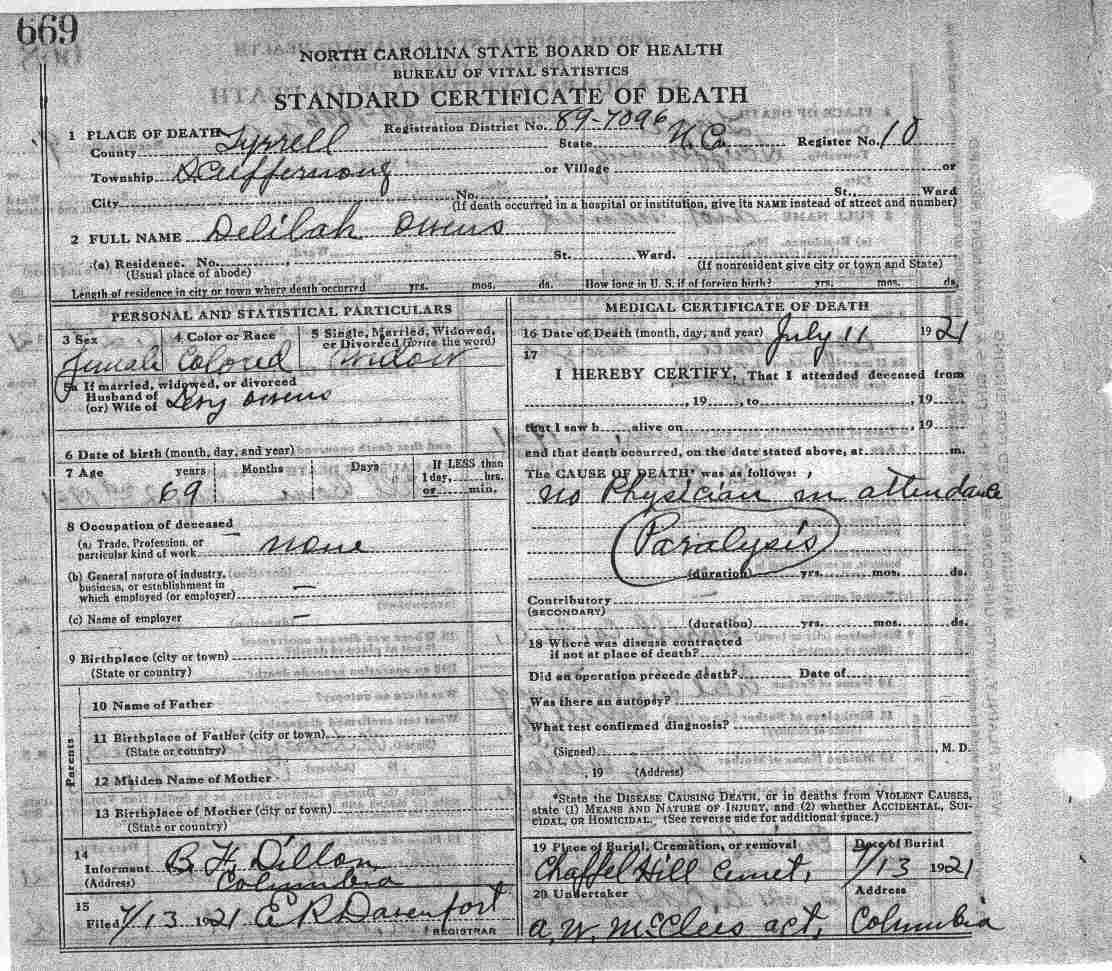 669
NORTH CAROLINA STATE BOARD OF HEALTH
BUREAU OF VITAL STATISTICS
STANDARD CERTIFICATE OF DEATH
1 PLACE OF DEATH Registration District No. 89-7096
County Tyrrell State N.C. Register No. 10
Township Scuppernong or Village or
City No. St., Ward
(If death occurred in a hospital or institution, give its NAME instead of street and number)
2 FULL NAME Delilah Owens
(a) Residence. No. , St. Ward.
(Usual place of abode) (If nonresident give city or town and State)
Length of residence in city or town where death occurred yrs. mos. ds. How long in U. S. if of foreign birth? yrs. mos. ds.
PERSONAL AND STATISTICAL PARTICULARS
3 Sex 4 Color or Race 5 Single, Married, Widowed, or Divorced (write the word)
Female Colored Widow
5a If married, widowed, or divorced
Husband of
(or) Wife of Levy Owens
6 Date of birth (month, day, and year)
7 Age years Months Days If LESS than
1 day, hrs.
or min.
69
8 Occupation of deceased
(a) Trade, Profession, or
particular kind of work none
(b) General nature of industry,
business, or establishment in
which employed (or employer) —
(c) Name of employer —
9 Birthplace (city or town)
(State or country)
Parents
10 Name of Father
11 Birthplace of Father (city or town)
(State or country)
12 Maiden Name of Mother
13 Birthplace of Mother (city or town)
(State or country)
14
Informant B. F. Dillon
(Address) Columbia
15
Filed 7/13 1921 E R Davenport
REGISTRAR
MEDICAL CERTIFICATE OF DEATH
16 Date of Death (month, day, and year) July 11 1921
17
I HEREBY CERTIFY, That I attended deceased from
, 19 , to , 19
that I saw h alive on , 19
and that death occurred, on the date stated above, at m.
The CAUSE OF DEATH* was as follows:
no Physician in attendance
Paralysis
(duration) yrs. mos. ds.
Contributory
(SECONDARY)
(duration) yrs. mos. ds.
18 Where was disease contracted
if not at place of death?
Did an operation precede death? Date of
Was there an autopsy?
What test confirmed diagnosis?
(Signed) , M. D.
, 19 (Address)
*State the DISEASE CAUSING DEATH, or in deaths from VIOLENT CAUSES,
state (1) MEANS AND NATURE OF INJURY, and (2) whether ACCIDENTAL, SUI-
CIDAL, OR HOMICIDAL. (See reverse side for additional space.)
19 Place of Burial, Cremation, or removal Date of Burial
Chappel Hill Cemet. 7/13 1921
20 Undertaker Address
A. W. McClees act, Columbia